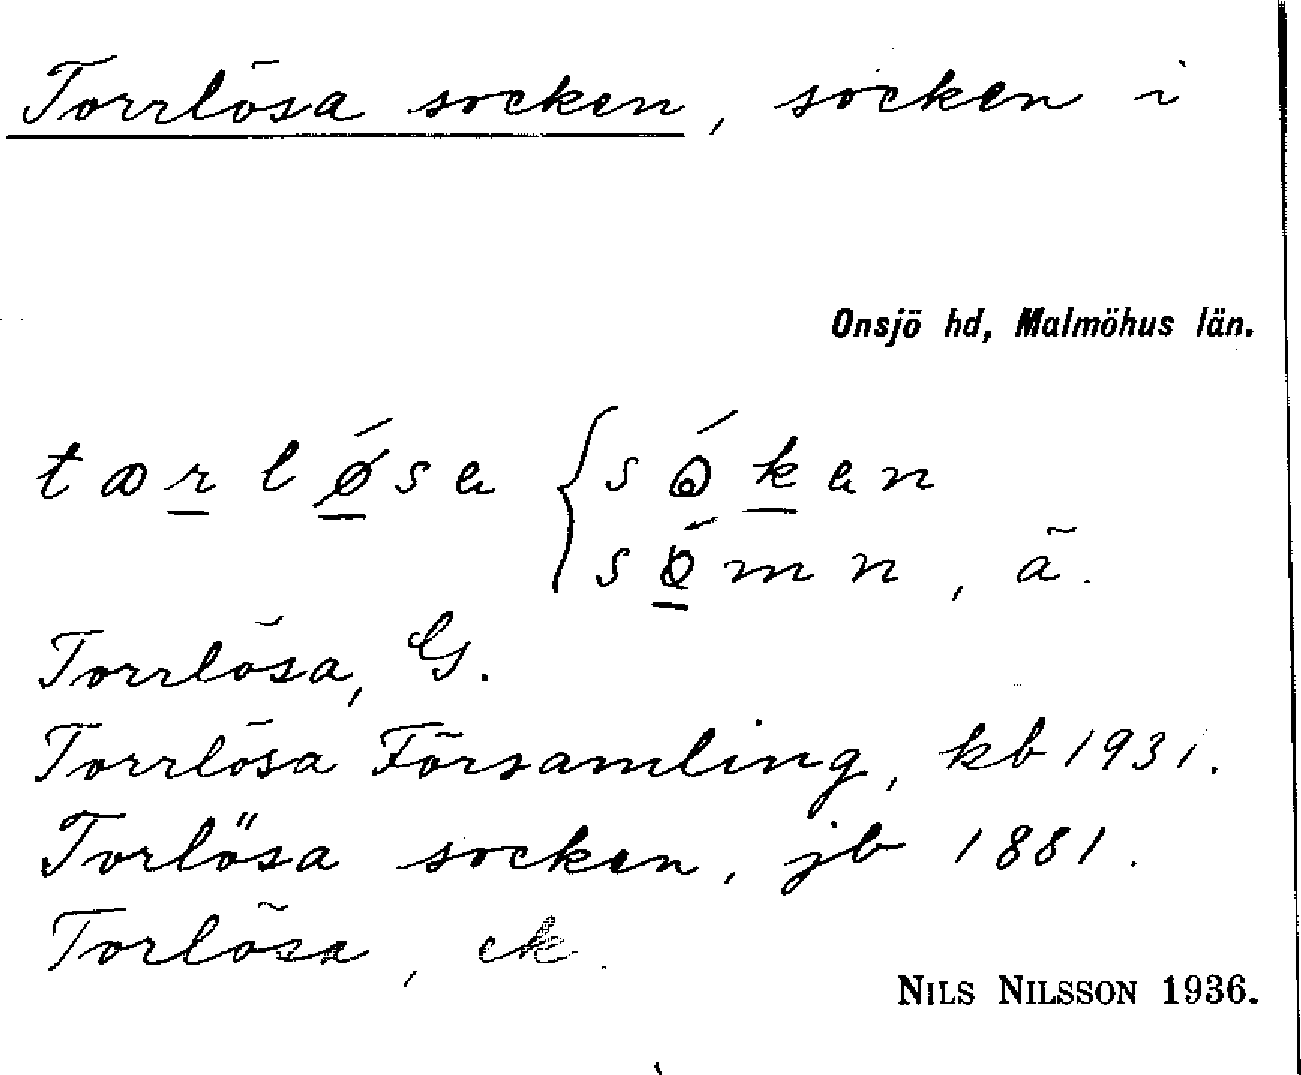 Torrlösa socken, socken i
Onsjö hd, Malmöhus län.
Torrlösa, G.
Torrlösa Församling, kb 1931.
Torlösa socken, jb 1881.
Torlösa, ek.
NILS NILSSON 1936.